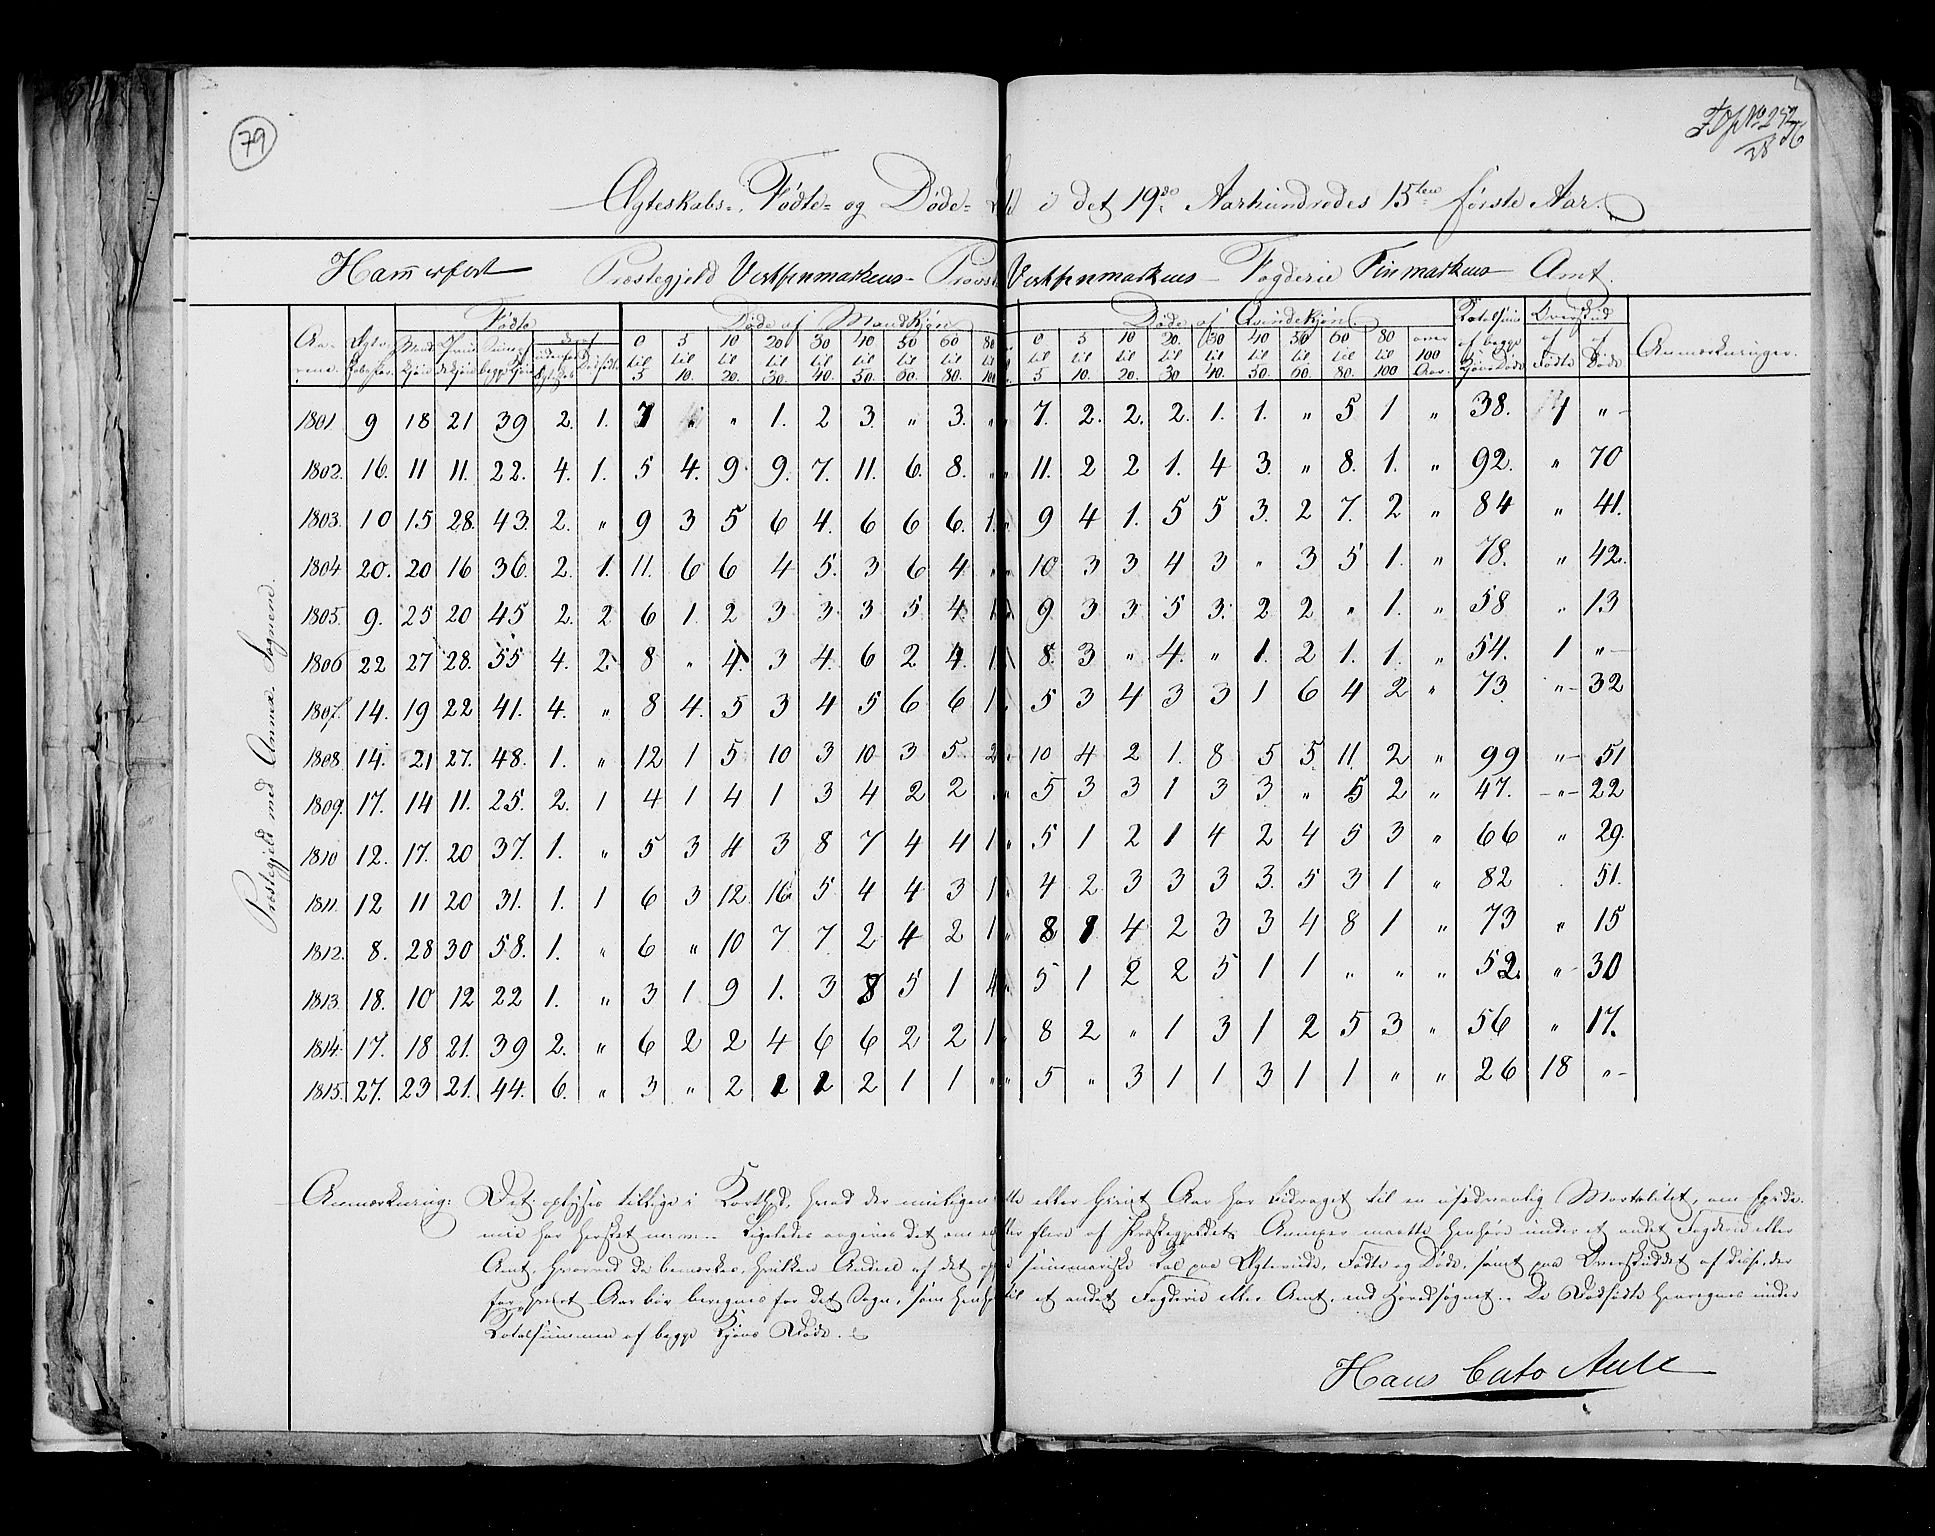 79
Ægteskabs-, Fødte- og Døde- i det 19de Aarhundredes 15ten første Aar.
Hammerfest Præstegjeld Vestfinmarkens Provstie Vestfinmarkens Fogderie Finmarkens Amt.
Præstegjeld med Annex Sognene
Fødte Døde af Mandkjøn Døde af Qvindekjøn. Totalsum Overskud
Mand Qvind Summa af 0 5 10 20 30 40 50 60 80 0 5 10 20 30 40 50 60 80 over af begge af af Anmærkninger.
kjøn kjøn begge Kjøn til til til til til til til til til til til til til til til til til til 100 Kjøns Døde Fødte Døde
5 10. 20. 30. 40. 50. 60. 80. 100 5 10. 20 30 40. 50. 60. 80 100 Aar.
1801. 9 18 21 39 2. 1. 7 " " 1. 2 3. " 3. " " 7. 2. 2. 2. 1. 1. " 5 1 " 38. 1 "
1802. 16. 11 11. 22. 4. 1. 5 4. 9. 9. 7. 11. 6. 8. " " 11. 2 2 1. 4 3. " 8. 1. " 92. " 70
1803. 10 15 28. 43. 2. " 9 3 5 6 4. 6 6 6. 1. " 9 4 1. 5 5 3. 2 7. 2 " 84 " 41.
1804 20. 20 16 36. 2. 1. 11. 6 6 4 5. 3 6 4 " " 10 3 3 4 3 " 3 5 1. " 78. " 42.
1805. 9. 25 20 45 2. 2 6 1. 2 3 3. 3. 5. 4. 1 9 3 3 5 3. 2 2 " 1. " 58 " 13
1806 22 27 28. 55 4. 2. 8 " 4. 3 4. 6 2 4. 1 8. 3 " 4. " 1. 2 1. 1. " 54. 1 "
1807. 14. 19 22 41. 4. " 8 4. 5 3 4 5 6 6 1 5 3 4 3 3 1 6 4 2 " 73 " 32
1808. 14. 21 27. 48. 1. " 12 1 5 10 3 10 3 5. 2 10 4 2 1. 8 5 5 11. 2 " 99 " 51
1809. 17. 14 11. 25. 2. 1 4 1 4 1 3 4 2 2 " " 5 3 3 1 3 3 " 5 2 " 47. " 22
1810 12. 17. 20 37. 1. " 5 3 4 3 8 7 4 4 1 " 5 1 2 1 4 2 4 5 3 " 66 " 29.
1811. 12 11 20 31. 1. 1 6 3 12. 16 5 4 4 3 1 4 2 3 3 3 3. 5 3 1 " 82 51.
1812. 8. 28 30 58. 1. " 6 " 10 7 7 2 4 2 1 " 8 1 4 2 3 3 4 8 1 " 73 " 15
1813. 18. 10 12 22 1. " 3 1 9 1. 3 8 5 1 4 " 5 1 2 2 5 1 1 " " " 52. " 30
1814 17. 18 21. 39 2. " 6 2 2 4 6 6 2 2 1 8 2 " 1 3 1 2 5 3 " 56 " 17.
1815. 27. 23 21. 44. 6. " 3 " 2 1 2 2 1 1 " " 5 " 3 1 1 3 1 1 " " 26 18 "
Anmærkning: Det oplyses tillige i Korthed, hvad der eller hvert Aar har bidraget til en usædvanlig Mortalitet, om Epide-
mie har hersket m. m. Ligeledes angives det om eller flere af Præstegjeldets Annexer maatte henhøre under et andet Fogderie eller
Amt, hvorved da bemærkes, hvilken Andeel af det summariske Tal paa Ægteviede, Fødte og Døde, samt paa Overskuddet af disse, der
for hvert Aar bør beregnes for det Sogn, som til et andet Fogderie eller Amt, end Hovedsognet. De Dødfødte henregnes under
Totalsummen af begge Kjøns Døde.
Hans Cato Aall